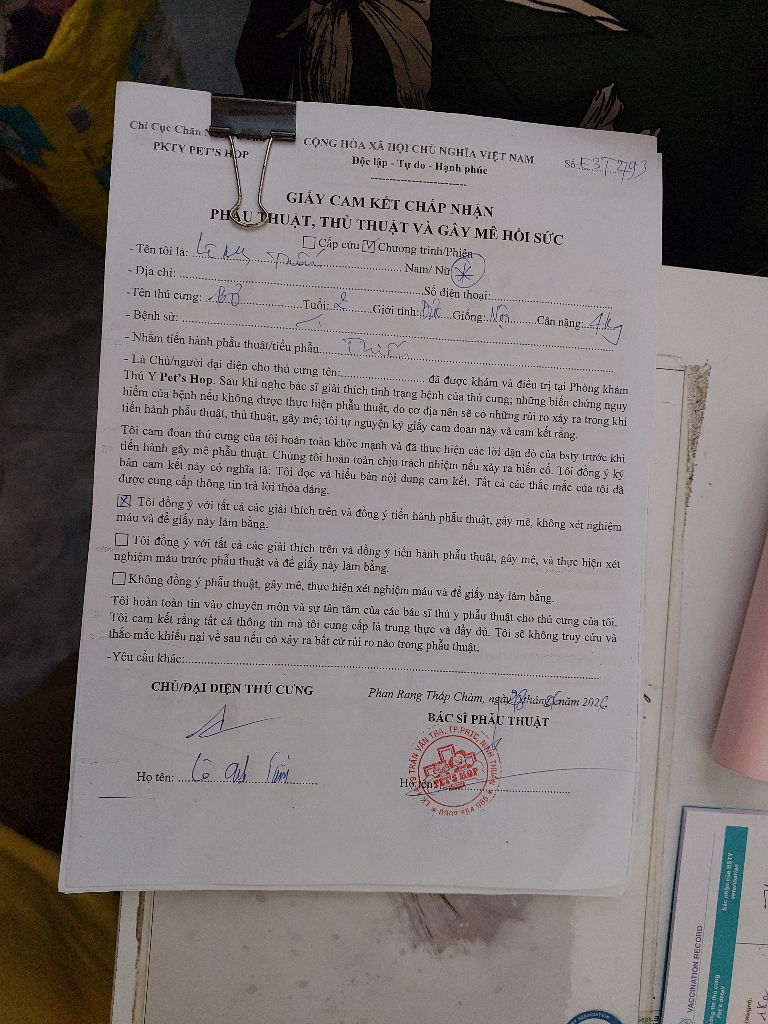 Chi Cục Chăn
CỘNG HÒA XÃ HỘI CHỦ NGHĨA VIỆT NAM
PKTY PET'S HOP
Độc lập - Tự do - Hạnh phúc
Số
GIẤY CAM KẾT CHẤP NHẬN
PHẪU THUẬT, THỦ THUẬT VÀ GÂY MÊ HỒI SỨC
☐ Cấp cứu ☑ Chương trình/Phiên
- Tên tôi là: Nam/ Nữ
- Địa chỉ: Số điện thoại:
-Tên thú cưng: Tuổi: 2 Giới tính: Đực Giống: Nội Cân nặng: 4kg
- Bệnh sử:
- Nhằm tiến hành phẫu thuật/tiểu phẫu Thiến
- Là Chủ/người đại diện cho thú cưng tên: đã được khám và điều trị tại Phòng khám
Thú Y Pet's Hop. Sau khi nghe bác sĩ giải thích tình trạng bệnh của thú cưng; những biến chứng nguy
hiểm của bệnh nếu không được thực hiện phẫu thuật, do cơ địa nên sẽ có những rủi ro xảy ra trong khi
tiến hành phẫu thuật, thủ thuật, gây mê; tôi tự nguyện ký giấy cam đoan này và cam kết rằng.
Tôi cam đoan thú cưng của tôi hoàn toàn khỏe mạnh và đã thực hiện các lời dặn dò của bsty trước khi
tiến hành gây mê phẫu thuật. Chúng tôi hoàn toàn chịu trách nhiệm nếu xảy ra biến cố. Tôi đồng ý ký
bản cam kết này có nghĩa là: Tôi đọc và hiểu bản nội dung cam kết. Tất cả các thắc mắc của tôi đã
được cung cấp thông tin trả lời thỏa đáng.
☒ Tôi đồng ý với tất cả các giải thích trên và đồng ý tiến hành phẫu thuật, gây mê, không xét nghiệm
máu và để giấy này làm bằng.
☐ Tôi đồng ý với tất cả các giải thích trên và đồng ý tiến hành phẫu thuật, gây mê, và thực hiện xét
nghiệm máu trước phẫu thuật và để giấy này làm bằng.
☐ Không đồng ý phẫu thuật, gây mê, thực hiện xét nghiệm máu và để giấy này làm bằng.
Tôi hoàn toàn tin vào chuyên môn và sự tận tâm của các bác sĩ thú y phẫu thuật cho thú cưng của tôi.
Tôi cam kết rằng tất cả thông tin mà tôi cung cấp là trung thực và đầy đủ. Tôi sẽ không truy cứu và
thắc mắc khiếu nại về sau nếu có xảy ra bất cứ rủi ro nào trong phẫu thuật.
-Yêu cầu khác:
Phan Rang Tháp Chàm, ngày 28 tháng năm 2026
CHỦ/ĐẠI DIỆN THÚ CƯNG
BÁC SĨ PHẪU THUẬT
Họ tên:
Họ tên
TRẦN VĂN TRÀ, TP.PRTC, NINH THUẬN
PET'S HOP
Xác nhận của BSTY
Veterinarian
VACCINATION RECORD
Pet's detail
(Weight):
Sept.